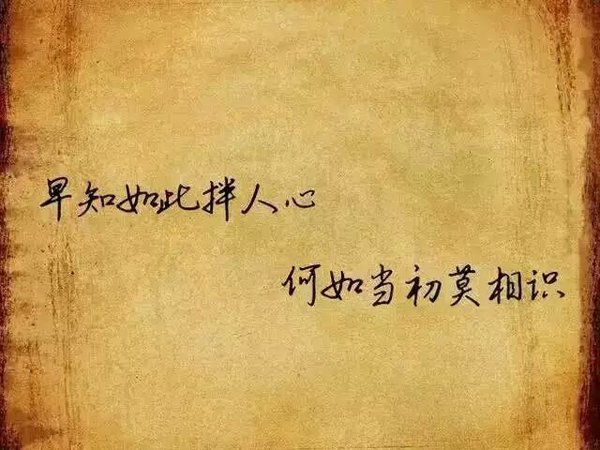 早知如此拌人心
何如当初莫相识